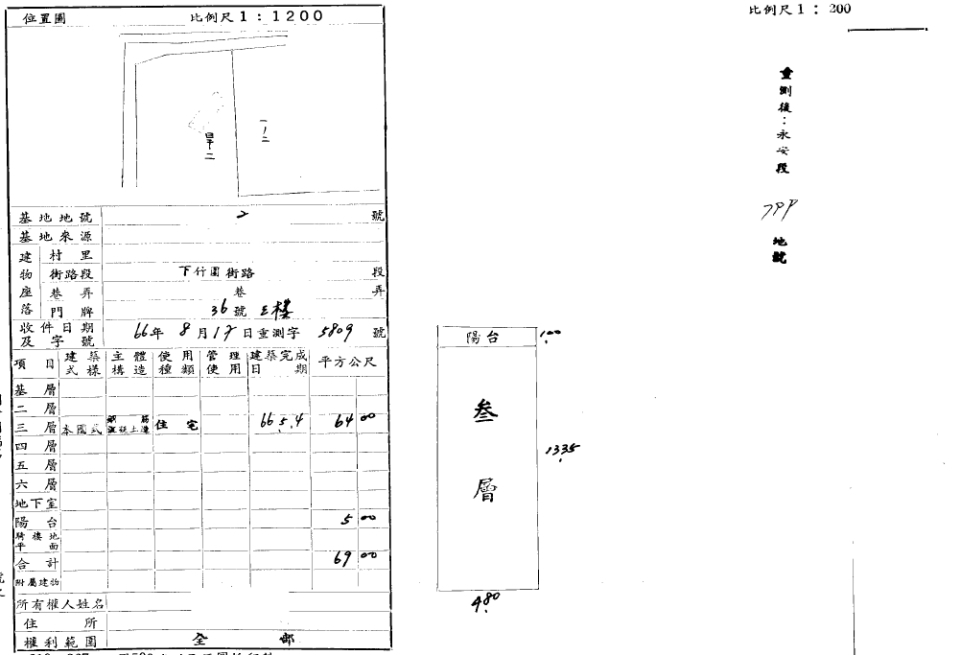 位置圖 比例尺1:1200
一/二
旱二
基地地號 2 號
基地來源
建物座落 村里
街路段 下竹圍街路 段
巷弄 巷 弄
門牌 36號 三樓
收件日期及字號 66年8月17日重測字 5809 號
項目 建築式樣 主體構造 使用種類 管理使用 建築完成日期 平方公尺
基層
二層
三層 本國式 鋼筋混凝土造 住宅 66 5.4 64 00
四層
五層
六層
地下室
陽台 5 00
騎樓地平面
合計 69 00
附屬建物
所有權人姓名
住所
權利範圍 全部
比例尺1:200
重測後:永安段
地號
陽台 1.00
叁層
13.35
4.80